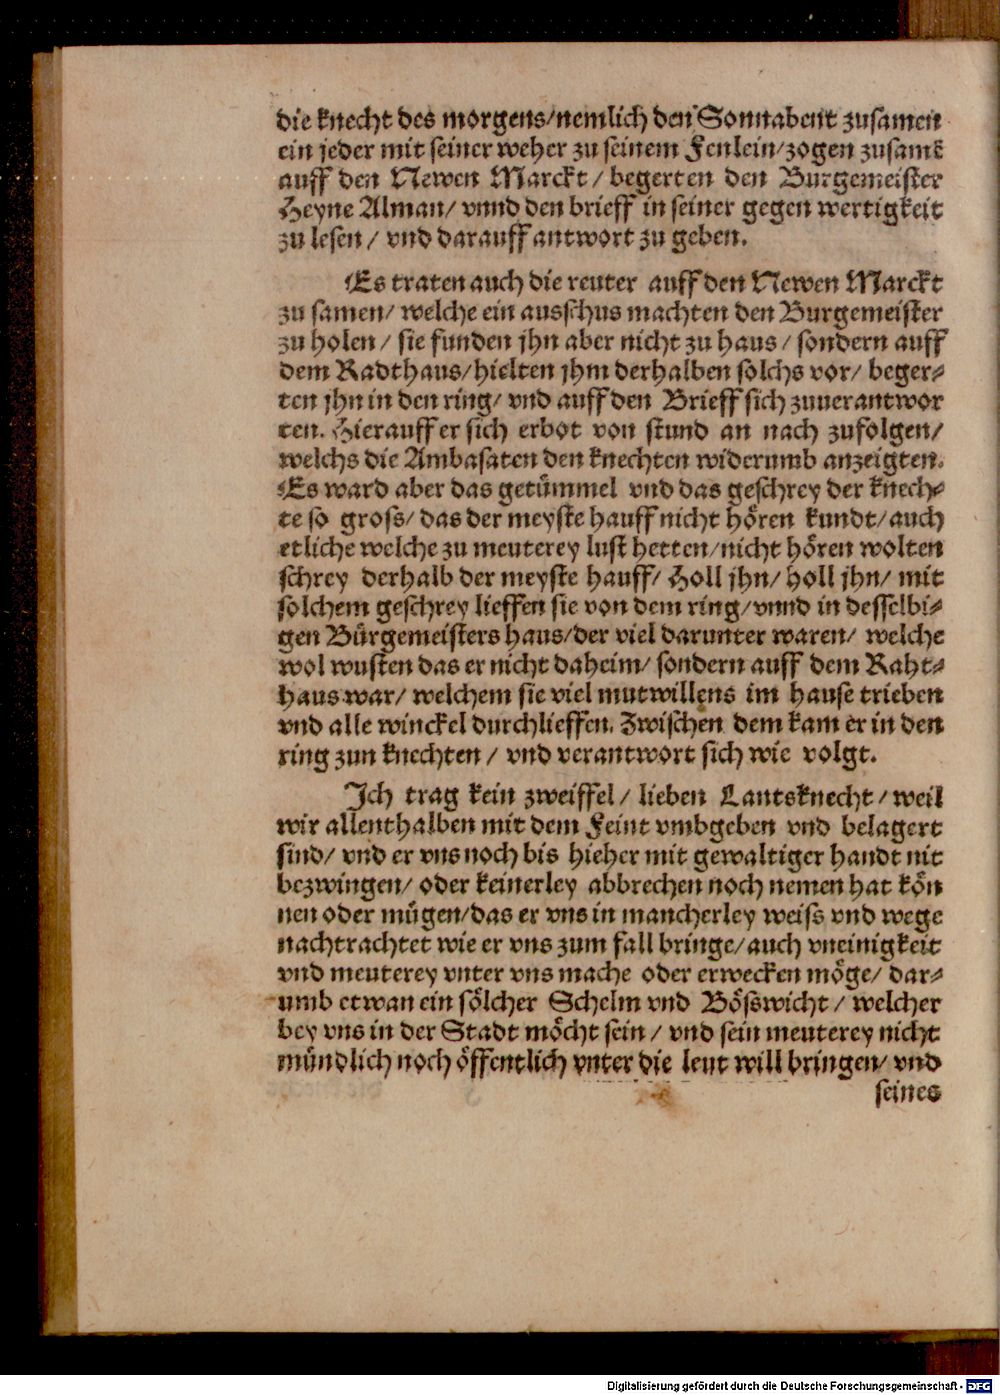 die knecht des morgens/nemlich den Sonnabent zusamen
ein jeder mit seiner weher zu seinem Fenlein/zogen zusamē
auff den Newen Marckt / begerten den Burgemeister
Heyne Alman/ vnnd den brieff in seiner gegen wertigkeit
zu lesen / vnd darauff antwort zu geben.
Es traten auch die reuter auff den Newen Marckt
zu samen/ welche ein ausschus machten den Burgemeister
zu holen / sie funden jhn aber nicht zu haus / sondern auff
dem Radthaus/hielten jhm derhalben solchs vor/ beger-
ten jhn in den ring/ vnd auff den Brieff sich zuuerantwor
ten. Hierauff er sich erbot von stund an nach zufolgen/
welchs die Ambasaten den knechten widerumb anzeigten.
Es ward aber das getümmel vnd das geschrey der knech-
te so gross/ das der meyste hauff nicht hören kundt/ auch
etliche welche zu meuterey lust hetten/nicht hören wolten
schrey derhalb der meyste hauff/ Holl jhn/ holl jhn/ mit
solchem geschrey lieffen sie von dem ring/ vnnd in desselbi-
gen Bürgemeisters haus/der viel darunter waren/ welche
wol wusten das er nicht daheim/ sondern auff dem Raht-
haus war/ welchem sie viel mutwillens im hause trieben
vnd alle winckel durchlieffen. Zwischen dem kam er in den
ring zun knechten / vnd verantwort sich wie volgt.
Ich trag kein zweiffel / lieben Lantsknecht / weil
wir allenthalben mit dem Feint vmbgeben vnd belagert
sind/ vnd er vns noch bis hieher mit gewaltiger handt nit
bezwingen/ oder keinerley abbrechen noch nemen hat kön
nen oder mügen/das er vns in mancherley weiss vnd wege
nachtrachtet wie er vns zum fall bringe/ auch vneinigkeit
vnd meuterey vnter vns mache oder erwecken möge/ dar-
umb etwan ein sölcher Schelm vnd Bösswicht / welcher
bey vns in der Stadt möcht sein / vnd sein meuterey nicht
mündlich noch öffentlich vnter die leut will bringen/ vnd
seines
Digitalisierung gefördert durch die Deutsche Forschungsgemeinschaft - DFG